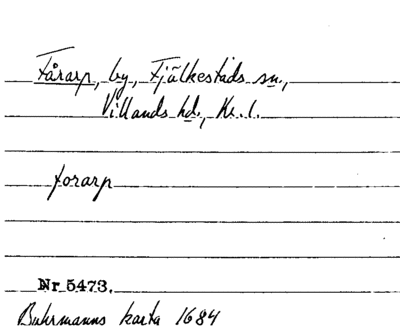 Fårarp, by, Fjälkestads sn.,
Villands hd., Kr. l.
forarp
Nr 5473.
Buhrmanns karta 1684